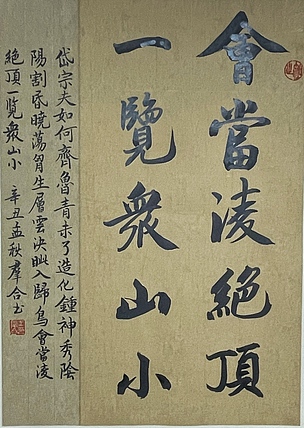 會當淩絕頂
一覽衆山小
岱宗夫如何齊魯青未了造化鍾神秀陰
陽割昏曉蕩胷生層雲決眦入歸鳥會當淩
絕頂一覽衆山小 辛丑孟秋羣合書